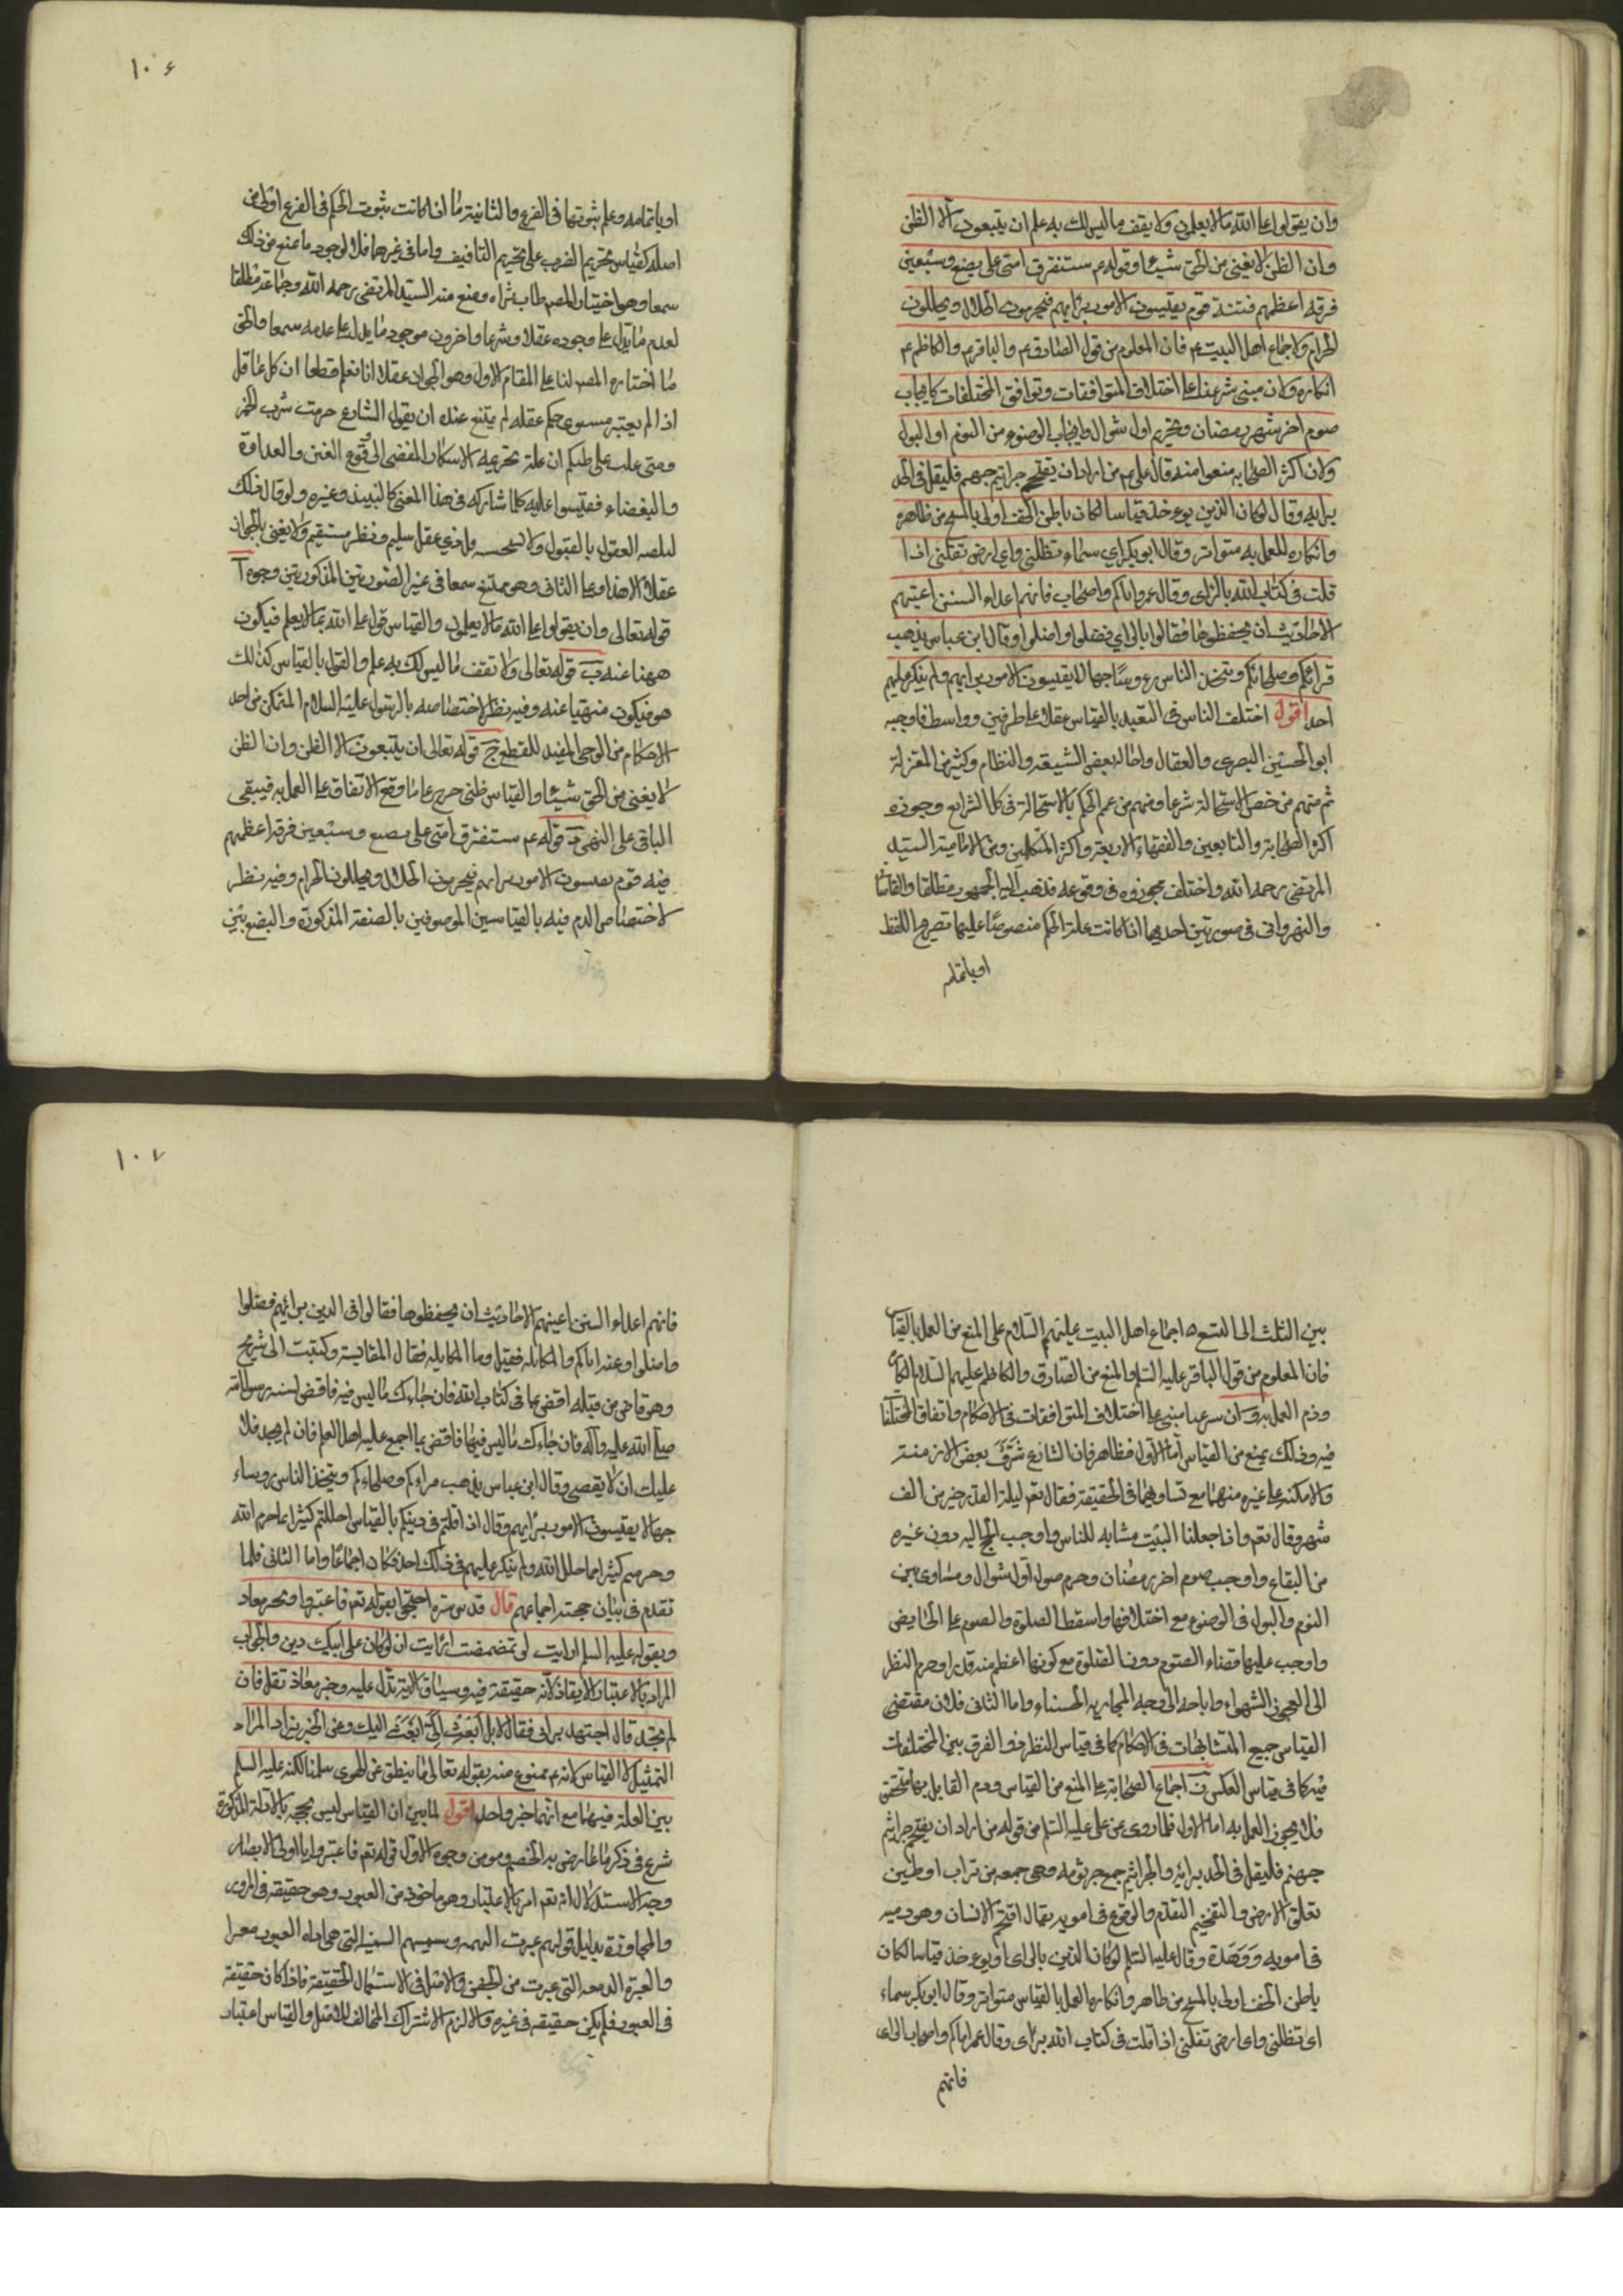 وان يقولوا على الله مالا يعلمون ولا يقف ماليس لك به علم ان يتبعون الا الظن
وان الظن لا يغنى من الحق شيئا وقوله عم ستفترق امتى على بضع وسبعين
فرقه اعظمهم فتنة قوم يقيسون الامور برايهم فيحرمون الحلال ويحللون
الحرام ولاجماع اهل البيت عم فان المعلوم من قول الصادق عم والباقر عم والكاظم عم
انكاره ولان مبنى شرعنا على اختلاف المتوافقات وتوافق المختلفات كايجاب
صوم اخر شهر رمضان وتحريم اول شوال وايجاب الوضوء من النوم او البول
ولان اكثر الصحابه منعوا منه قال على عم من اراد ان يقتحم جراثيم جهنم فليقل فى الجد
برايه وقال لو كان الدين يوءخذ قياسا لكان باطن الخف اولى بالمسح من ظاهره
وانكاره للعمل به متواتر وقال ابو بكر اى سماء تظلنى واى ارض تقلنى اذا
قلت فى كتاب الله بالراى وقال عمر واياكم واصحاب فانهم اعداء السنن اعيتهم
الاحاديث ان يحفظوها فقالوا بالراى فضلوا واضلوا وقال ابن عباس يذهب
قراءكم وصلحاءكم ويتخذ الناس رءوسا جهالا يقيسون الامور برايهم ولم ينكر عليهم
احد اقول اختلف الناس فى التعبد بالقياس عقلا على طرفين وواسطة فاوجبه
ابو الحسين البصرى والقفال واحاله بعض الشيعة والنظام وكثير من المعتزلة
ثم منهم من خص الاستحالة شرعنا ومنهم من عم الحكم بالاستحالة فى كل الشرايع وجوزه
اكثر الصحابة والتابعين والفقهاء الاربعة واكثر المتكلمين ومن الامامية السيد
المرتضى رحمه الله واختلف مجوزوه فى وقوعه فذهب اليه الجمهور مطلقا والقاسانى
والنهروانى فى صورتين احديهما اذا كانت علة الحكم منصوصا عليها بتصريح اللفظ
او بايمائه
١٠٦
او بايمائه وعلم ثبوتها فى الفرع والثانية ما اذا كانت ثبوت الحكم فى الفرع اولى من
اصله كقياس تحريم الضرب على تحريم التافيف واما فى غيرهما فلا لوجود ما يمنع من ذلك
سمعا وهو اختيار المصم طاب ثراه ومنع منه السيد المرتضى رحمه الله وجماعة مطلقا
لعدم ما يدل على وجوده عقلا وشرعا واخرون لوجود ما يدل على عدمه سمعا والحق
ما اختاره المصم لنا على المقام الاول وهو الجواز عقلا انا نعلم قطعا ان كل عاقل
اذا لم يعتبر سوى حكم عقله لم يمتنع عنده ان يقول الشارع حرمت شرب الخمر
ومتى غلب على ظنكم ان علة تحريمه الاسكار المفضى الى وقوع الفتن والعداوة
والبغضاء فقيسوا عليه كلما شاركه فى هذا المعنى كالنبيذ وغيره ولو قال ذلك
لتلقته العقول بالقبول ولاستحسنه كل ذى عقل سليم ونظر مستقيم ولا يعنى بالجواز
عقلا الا هذا وعلى الثانى وهو ممتنع سمعا فى غير الصورتين المذكورتين وجوه آ
قوله تعالى وان يقولوا على الله مالا يعلمون والقياس قول على الله بما لا يعلم فيكون
منهيا عنه ب قوله تعالى ولا تقف ما ليس لك به علم والقول بالقياس كذلك
هو فيكون منهيا عنه وفيه نظر لاختصاصه بالرسول عليه السلام المتمكن من اخذ
الاحكام من الوحى المفيد للقطع ج قوله تعالى ان يتبعون الا الظن وان الظن
لا يغنى من الحق شيئا والقياس ظنى خرج عنه ما وقع الاتفاق على العمل به فيبقى
الباقى على النهى د قوله عم ستفترق امتى على بضع وسبعين فرقة اعظمهم
فتنه قوم يقيسون الامور برايهم فيحرمون الحلال ويحللون الحرام وفيه نظر
لاختصاص الذم فيه بالقياسين الموصوفين بالصفة المذكورة والبضع بين
بين الثلث الى التسع ه اجماع اهل البيت عليهم السلام على المنع من العمل بالقياس
فان المعلوم من قول الباقر عليه السلم والمنع من الصادق والكاظم عليهم السلام انكار
وذم العمل به و ان شرعنا مبنى على اختلاف المتوافقات فى الاحكام واتفاق المختلفات
فيه وذلك يمنع من القياس اما الاول فظاهر فان الشارع شرف بعض الازمنة
والامكنه على غيره منهما مع تساويهما فى الحقيقة فقال تعم ليلة القدر خير من الف
شهر وقال تعم واذا جعلنا البيت مثابه للناس واوجب الحج اليه دون غيره
من البقاع واوجب صوم اخر رمضان وحرم صوم اول شوال وساوى بين
النوم والبول فى الوضوء مع اختلافهما واسقط الصلوة والصوم على الحايض
واوجب عليها قضاء الصوم دون الصلوة مع كونها اعظم منه قدرا وحرم النظر
الى العجوز الشهواء واباحه الى وجه الجاريه الحسناء واما الثانى فلان مقتضى
القياس جمع المتشابهات فى الاحكام كما فى قياس النظر والفرق بين المختلفات
فيه كما فى قياس العكس ز اجماع الصحابة على المنع من القياس وذم القايل به متحقق
فلا يجوز العمل به اما الاول فلما روى عن على عليه السلم من قوله من اراد ان يقتحم جراثيم
جهنم فليقل فى الجد برايه والجراثيم جمع جرثومه وهى جمعه من تراب او طين
تعلق الارض والتقحم التقدم والوقوع فى امور يقال اقتحم الانسان وهو رميه
فى امويه ووهدة وقال عليه السلم لو كان الدين بالراى او يوءخذ قياسا لكان
باطن الخف اولى بالمسح من ظاهر وانكاره العمل بالقياس متواتر وقال ابو بكر سماء
اى تظلنى واى ارض تقلنى اذا قلت فى كتاب الله براى وقال عمر اياكم واصحاب الراى
فانهم
١٠٧
فانهم اعداء السنن اعيتهم الاحاديث ان يحفظوها فقالوا فى الدين برائهم فضلوا
واضلوا وعنه اياكم والمكايله فقيل وما المكايله فقال المقايسة وكتبت الى شريح
وهو قاض من قبله اقض بما فى كتاب الله فان جاءك ما ليس فيه فاقض بسنه رسول الله
صلى الله عليه وآله فان جاءك ما ليس فيها فاقض بما اجمع عليه اهل العلم فان لم تجد فلا
عليك ان لا يقضى وقال ابن عباس يذهب قراءكم وصلحاءكم ويتخذ الناس روساء
جهالا يقيسون الامور برايهم وقال اذا قلتم فى دينكم بالقياس احللتم كثيرا مما حرم الله
وحرمتم كثيرا مما حلل الله ولم ينكر عليهم فى ذلك احد فكان اجماعا واما الثانى فلما
تقدم فى بيان حجية اجماعهم قال قدس سره احتجوا بقوله تعم فاعتبروا وبخبر معاد
وبقوله عليه السلم ارايت لو تمضمضت ارايت ان لو كان على ابيك دين والجواب
المراد بالاعتبار الايقاظ لانه حقيقة فيه وسياق الاية تدل عليه وخبر معاذ نقل فان
لم تجد قال اجتهد براى فقال لا بل ابعث الى ابعث اليك وعن الخبرين ان المراد
التمثيل لا القياس لانه عم ممنوع منه بقوله تعالى وما ينطق عن الهوى سلمنا لكنه عليه السلم
بين العلة فيهما مع انهما خبر واحد اقول لما بين ان القياس ليس بحجه بالادلة المذكورة
شرع فى ذكر ما عارض به الخصم وهو من وجوه الاول قوله تعم فاعتبروا يا اولى الابصار
وجه الاستدلال انه تعم امر بالاعتبار وهو ماخوذ من العبور وهو حقيقه فى المرور
والمجاوزة بدليل قولهم عبرت النهر السفينه التى هى اداه العبور معبرا
والعبرة الدمعه التى عبرت من الجفن والاصل فى الاستعمال الحقيقة فاذا كان حقيقة
فى العبور فلم يكن حقيقه فى غيره والا لزم الاشتراك المخالف للاصل والقياس اعتبار